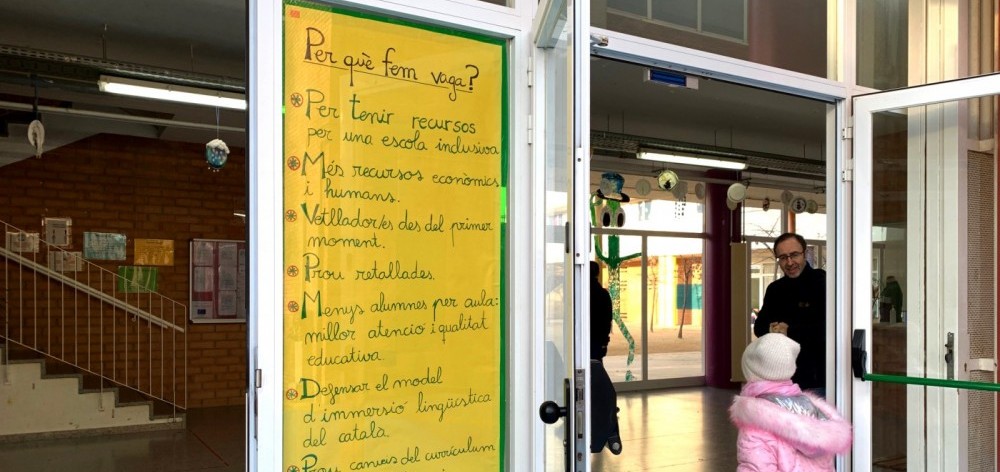 Per què fem vaga?
Per tenir recursos
per una escola inclusiva
Més recursos econòmics
i humans.
Vetllador/es des del primer
moment.
Prou retallades.
Menys alumnes per aula:
millor atenció i qualitat
educativa.
Defensar el model
d'immersió lingüística
del català.
Prou canvis del currículum